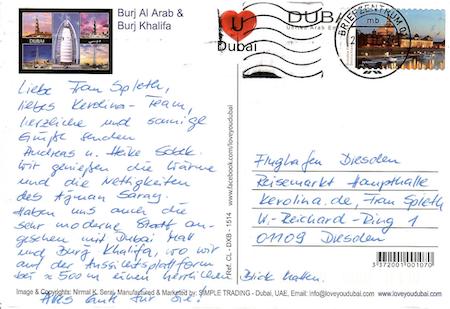 Burj Al Arab &
Burj Khalifa
DUBAI
U
Dubai
DUBAI
United Arab Em
BRIEFZENTRUM 0
mb
Liebe Frau Spleth,
liebes Kerolina-Team,
herzliche und sonnige
Grüße senden
Andreas u. Heike
Wir genießen die Wärme
und die Nettigkeiten
des Ajman Saray.
Haben uns auch die
sehr moderne Stadt an-
gesehen mit Dubai Mall
und Burg Khalifa, wo wir
auf der Aussichtsplattform
bei ≈ 500 m einen herrlichen
Blick hatten.
Alles Gute für Sie!
www.facebook.com/loveyoudubai
Ref. CL - DXB - 1514
Flughafen Dresden
Reisemarkt Haupthalle
Kerolina.de, Frau Spleth
W.-Reichard-Ring 1
01109 Dresden
3 372001 001070
Image & Copyrights: Nirmal K. Seraj, Manufactured & Marketed by: SIMPLE TRADING - Dubai, UAE, Email: info@loveyoudubai.com www.loveyoudubai.com